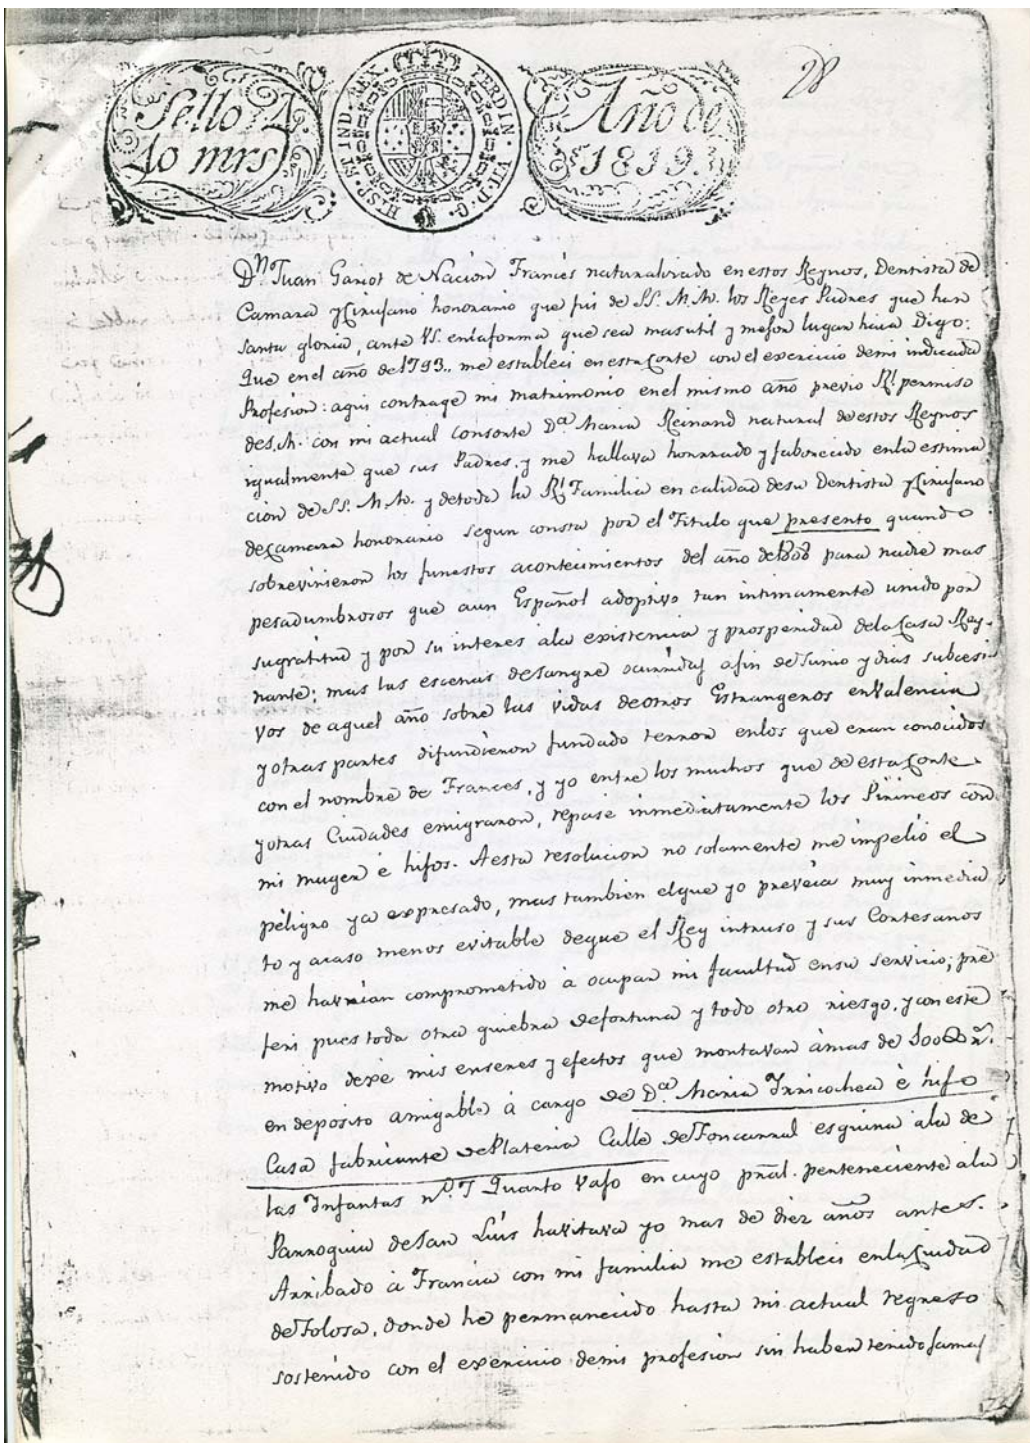 28
Sello 4º
40 mrs
HISP. ET IND. REX. FERDIN. VII. D. G.
Año de
1819.
Dn. Juan Gariot de Nacion Francés naturalizado en estos Reynos, Dentista de
Camara y Cirujano honorario que fui de SS. M.M. los Reyes Padres que han
santa gloria, ante VS. en la forma que sea mas util y mejor lugar haia Digo:
Que en el año de 1793.. me estableci en esta Corte con el exercicio de mi indicada
Profesion: aqui contrage mi matrimonio en el mismo año previo Rl. permiso
de S.M. con mi actual consorte Da. Maria Reinard natural de estos Reynos
igualmente que sus Padres, y me hallava honrrado y faborecido en la estima
cion de SS. M.M. y de toda la Rl. Familia en calidad de su Dentista y Cirujano
de Camara honorario segun consta por el Titulo que presento quando
sobrevinieron los funestos acontecimientos del año de 1808 para nadie mas
pesadumbrosos que a un Español adoptivo tan intimamente unido por
su gratitud y por su interes a la existencia y prosperidad de la Casa Rey-
nante; mas las escenas de sangre ocurridas a fin de Junio y dias subcesi-
vos de aquel año sobre las vidas de otros Estrangeros en Valencia
y otras partes difundieron fundado terror en los que eran conocidos
con el nombre de Frances, y yo entre los muchos que de esta Corte
y otras Ciudades emigraron, repasé inmediatamente los Pirineos con
mi muger é hijos. A esta resolucion no solamente me impelió el
peligro ya expresado, mas tambien el que yo preveia muy inmedia
to y acaso menos evitable de que el Rey intruso y sus Cortesanos
me havrian comprometido à ocupar mi facultad en su servicio; pre
feri pues toda otra quiebra de fortuna y todo otro riesgo, y con este
motivo dexé mis enseres y efectos que montavan à mas de rn.
en deposito amigable à cargo de Da. Maria Irricochea è hijo
Casa fabricante de Plateria Calle de Foncarral esquina a la de
las Infantas nº. 7 Quarto vajo en cuyo pral. perteneciente a la
Parroquia de San Luis havitava yo mas de diez años antes.
Arribado à Francia con mi familia me estableci en la Ciudad
de Tolosa, donde he permanecido hasta mi actual regreso
sostenido con el exercicio de mi profesion sin haber tenido jamas